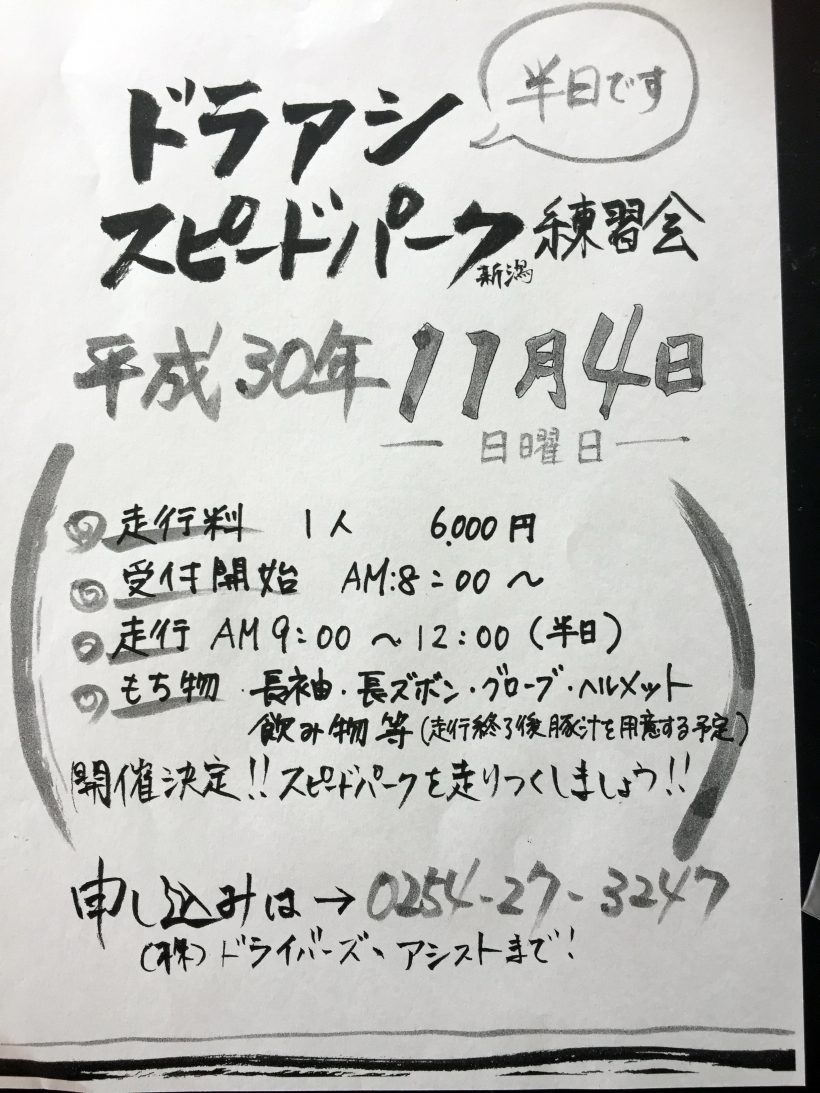 半日です
ドラアシ
スピードパーク新潟 練習会
平成30年 11月4日
― 日曜日 ―
走行料 1人 6,000円
受付開始 AM:8:00〜
走行 AM9:00〜12:00(半日)
もち物・長袖・長ズボン・グローブ・ヘルメット
飲み物等(走行終了後豚汁を用意する予定)
開催決定!!スピードパークを走りつくしましょう!!
申し込みは→0254-27-3247
(株)ドライバーズ、アシストまで!